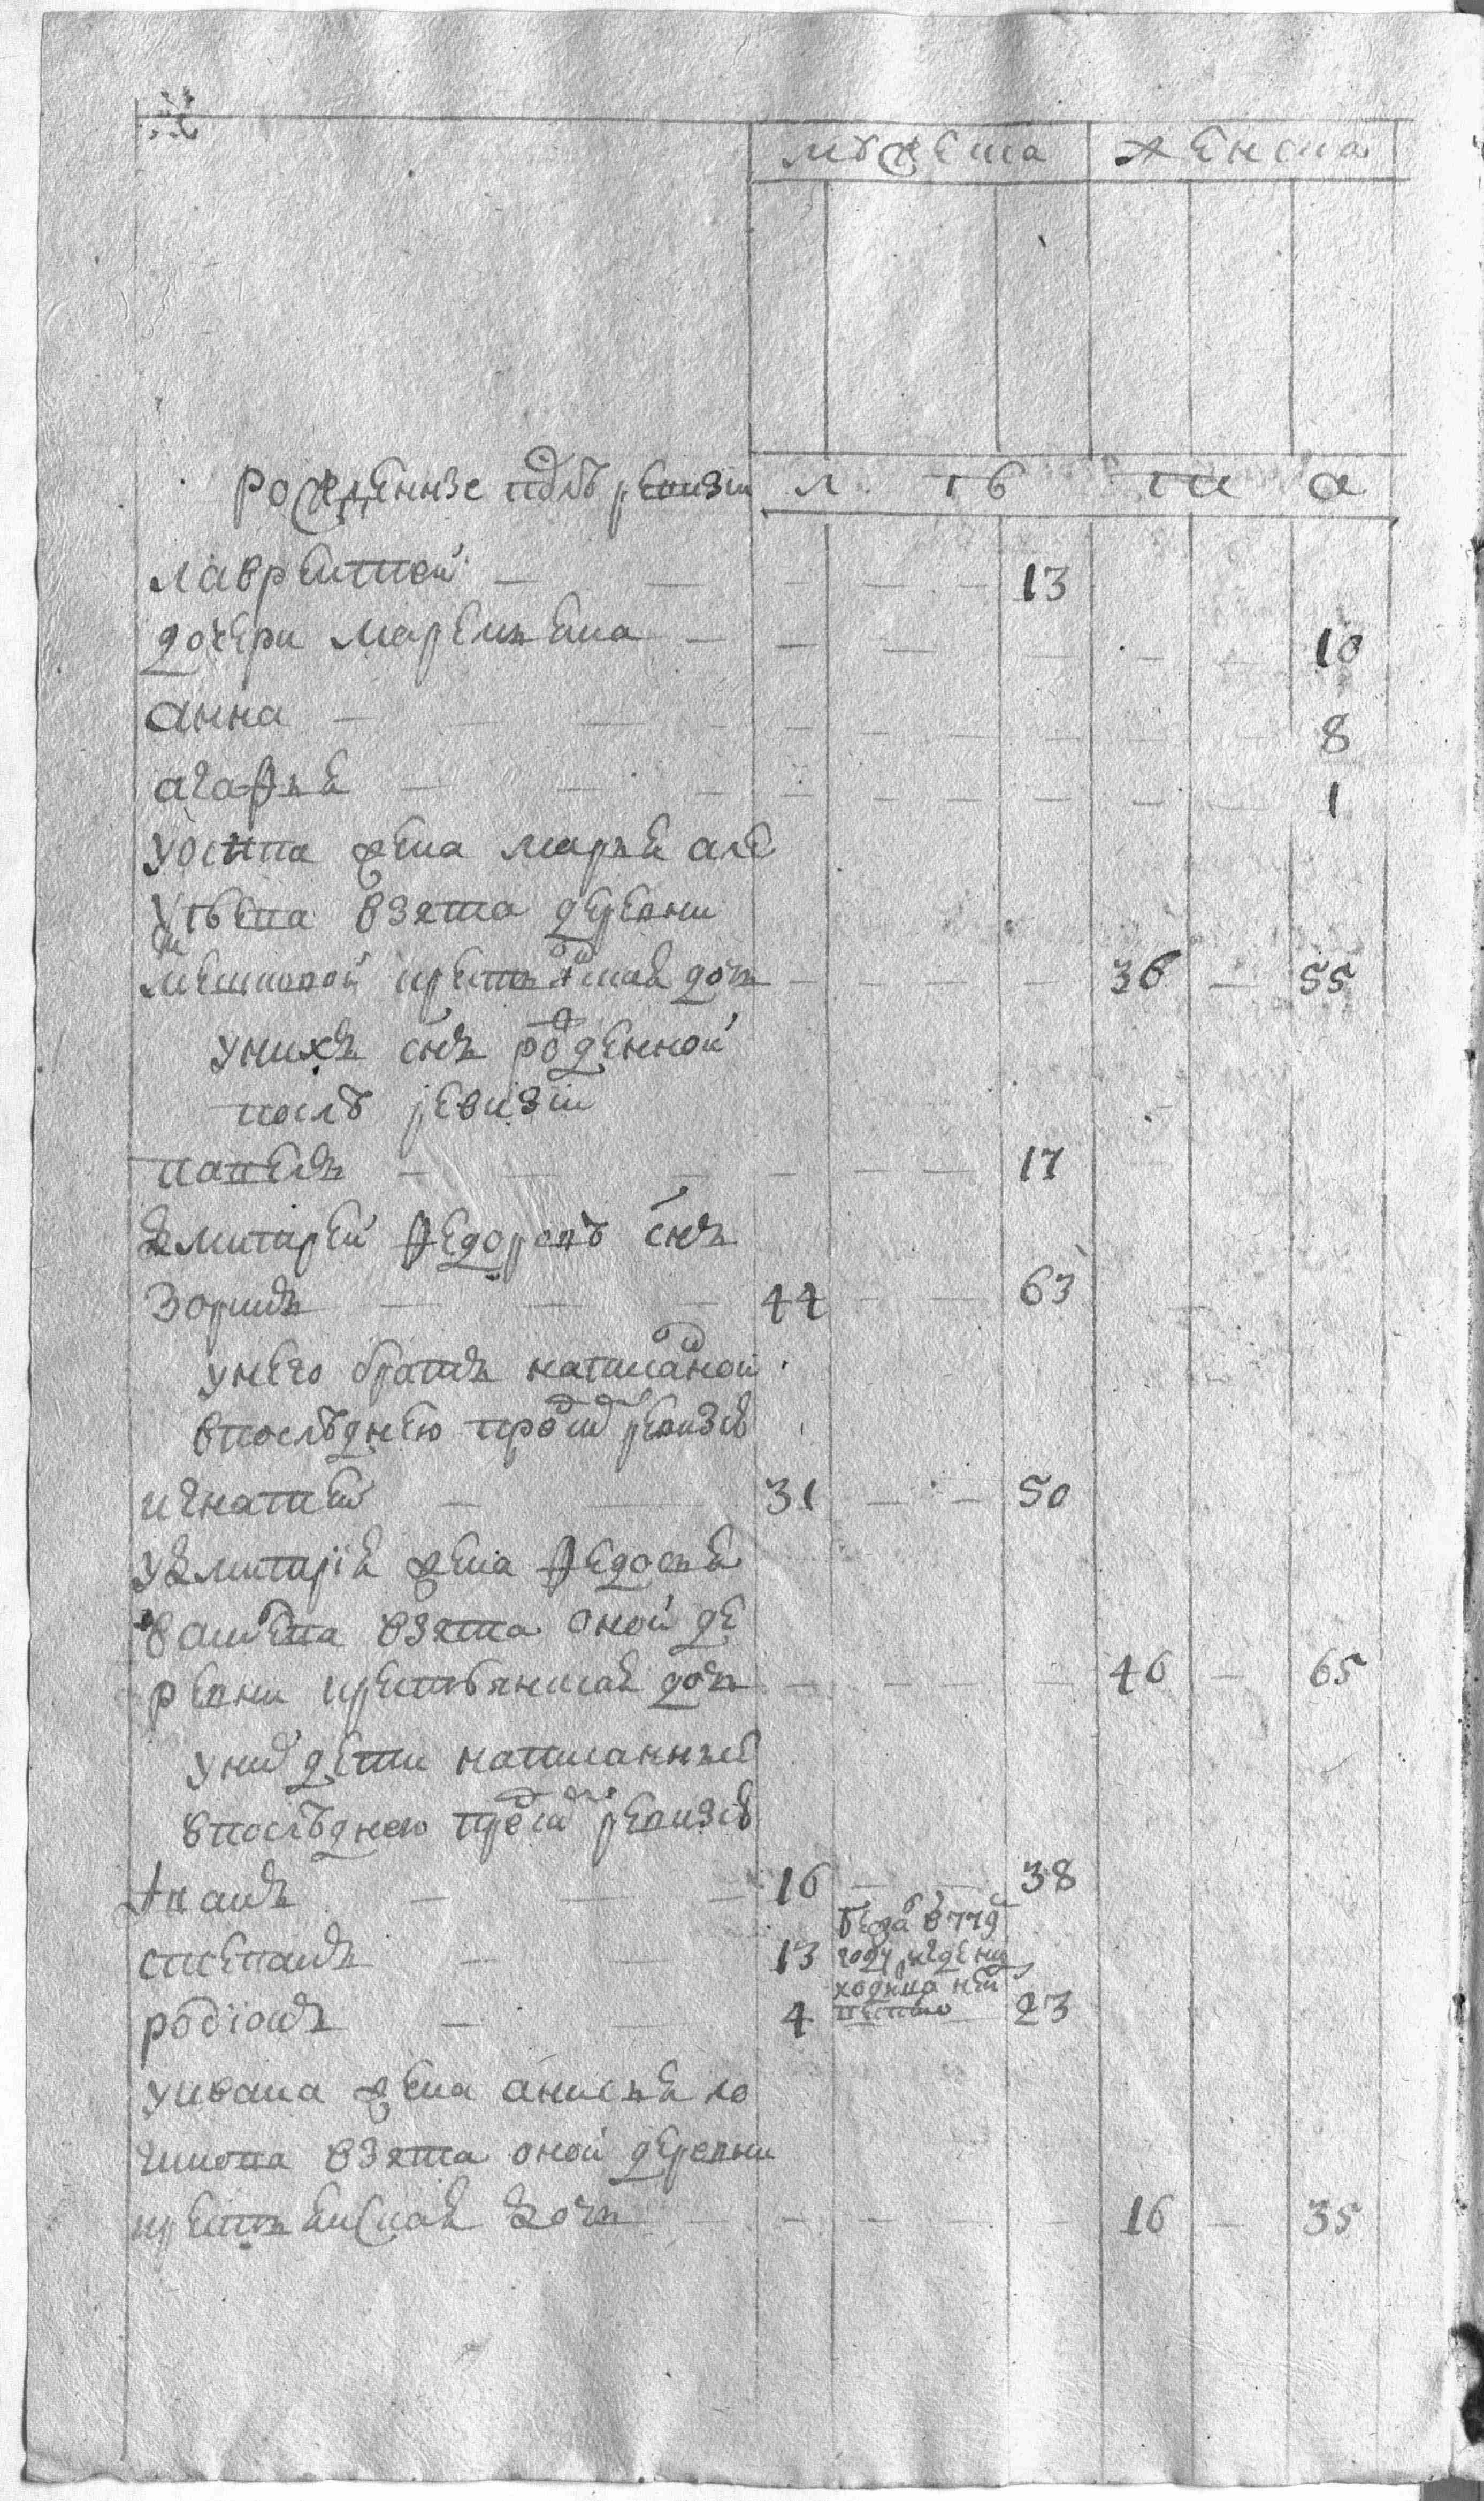 мужеска женска
рожденные послѣ ревизіи л ѣ т а
лаврентей — — — — — 13
дочери маремьяна — — — — — — 10
анна — — — — — — — — 8
агафья — — — — — — — — 1
уосипа жена марья але
ѣева взята деревни
крестьянская дочь — — — — 36 — 55
унихъ снъ рожденной
послѣ ревизіи
павелъ — — — — — — 17
дмитрей федоровъ снъ
зоринъ — — — 44 — — 63
унего братъ написанной
впослѣднею пред сим ревизіею
игнатей — — 31 — — 50
удмитрія жена федосья
взята оной де
ревни крестьянская дочь — — — — 46 — 65
уних дети написанные
впослѣднею пред сим ревизіею
иванъ — — — 16 — — 38
степанъ — — 13 бежалъ в 779 году
родіонъ — — 4 — 23
уивана жена анисья ло
гинова взята оной деревни
крестьянская дочь — — — — — 16 — 35